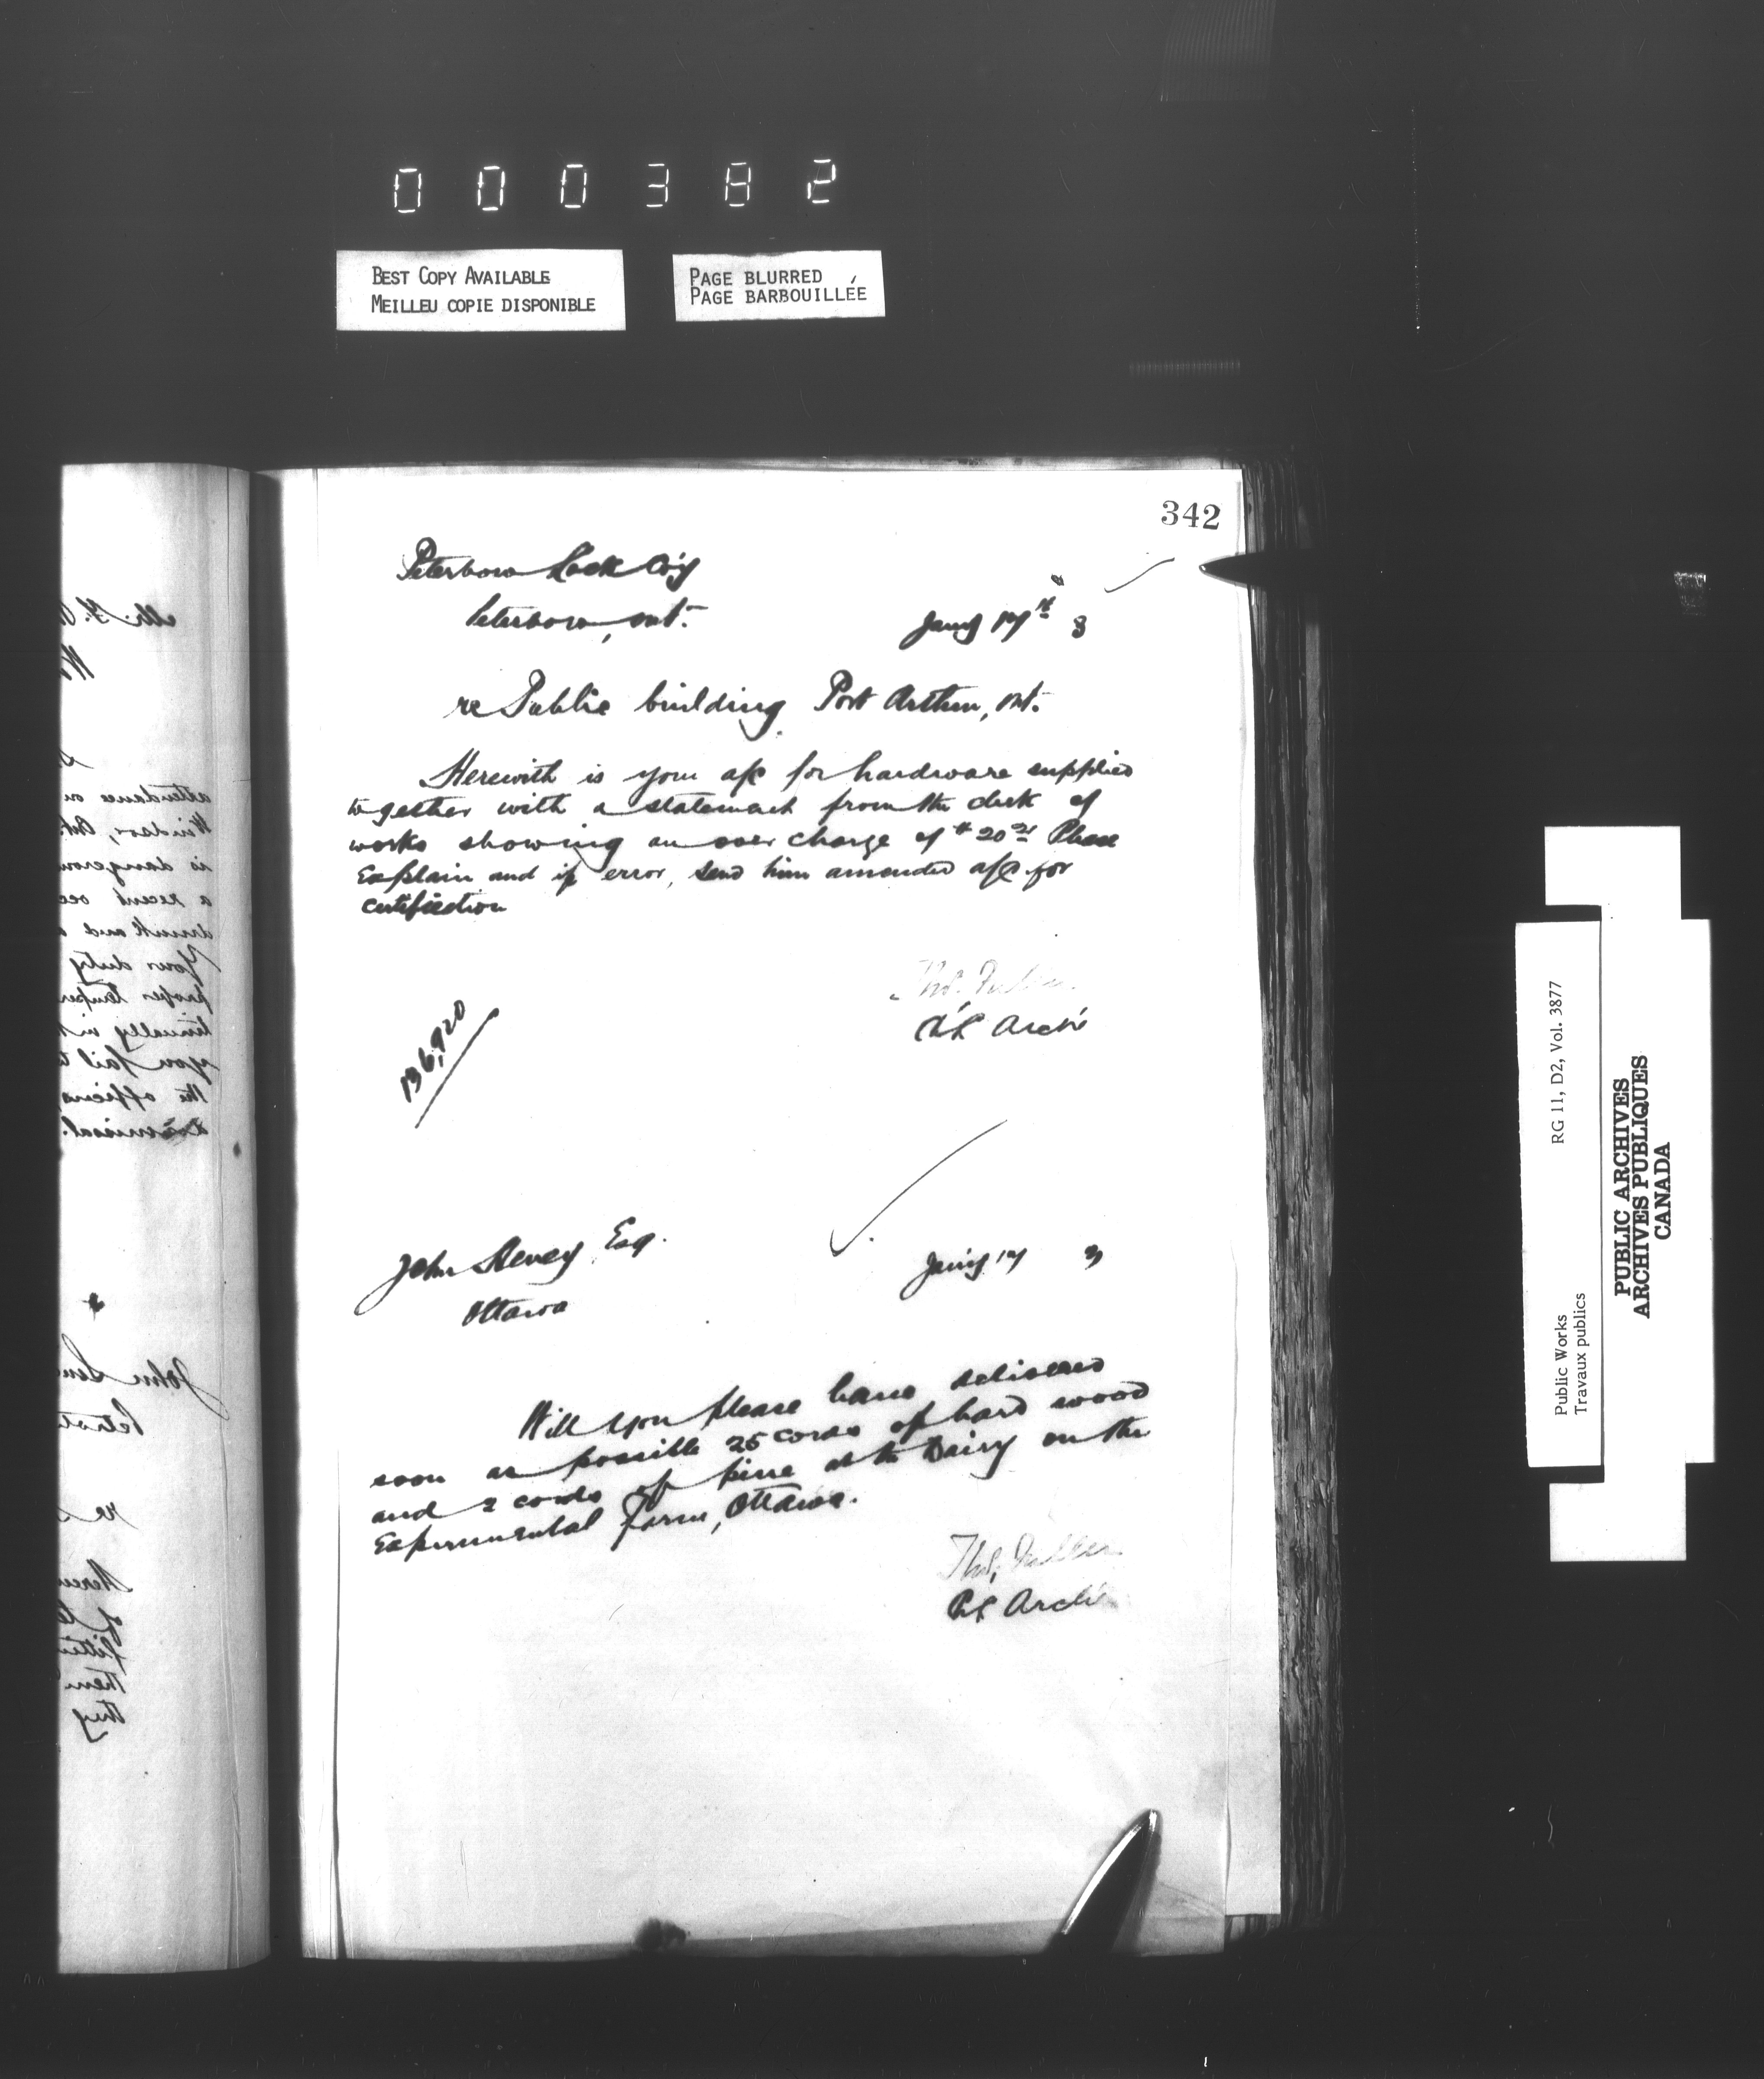 000382
BEST COPY AVAILABLE
MEILLEU COPIE DISPONIBLE
PAGE BLURRED
PAGE BARBOUILLÉE
342
Peterboro Lock Co'y
Peterboro, Ont.
Jan'y 17th 3
re Public building Port Arthur, Ont.
Herewith is your a/c for hardware supplied
together with a statement from the clerk of
works showing an over charge of $20 Please
Explain and if error, send him amended a/c for
certifiction
Thos. Fuller
Ch Arch't
136,920
John Heney Esq.
Ottawa
Jan'y 17 3
Will you please have delivered
soon as possible 25 cords of hard wood
and 2 cords of pine at the Dairy on the
Experimental Farm, Ottawa.
Thos. Fuller
Ch Arch't
attendance
Windsor, Ont.
is dangerous
a recent
drunk and
Your duty
proper
you fail
the officers
dismissal.
John
re
them
they
Public Works
Travaux publics
RG 11, D2, Vol. 3877
PUBLIC ARCHIVES
ARCHIVES PUBLIQUES
CANADA